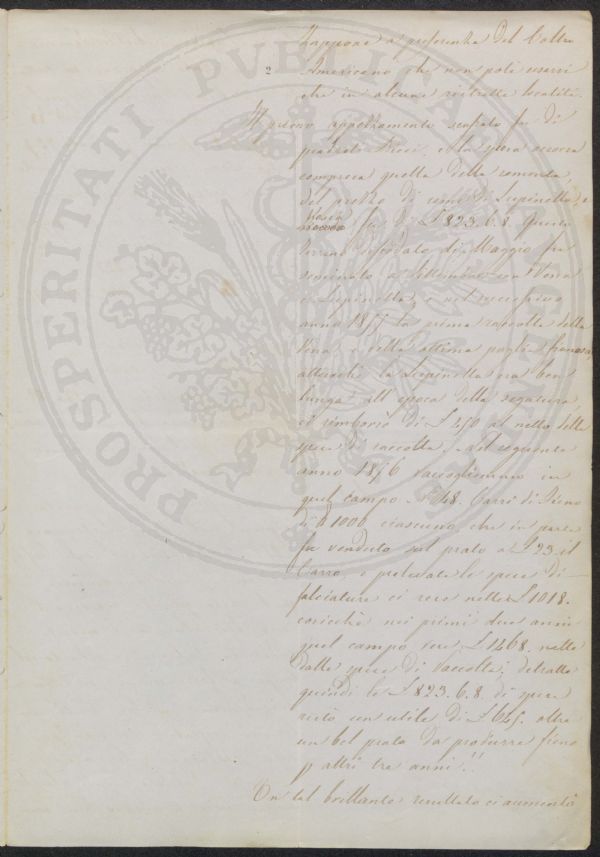 Zappone a preferenza del Coltro
2
Americano che non potè usarsi
che in alcune ristrette località.
Il primo appezzamento scassato fu di
Ricci, e la spesa occorsa
compresa quella della sementa,
del prezzo di seme di Lupinella, e
fu di £ 823.6.8. Questo
terreno di Maggio fu
seminato a Settembre con Vena
e Lupinella, e nel successivo
anno 18 la prima raccolta della
Vena, e della ottima paglia fienosa
attesochè la Lupinella era ben
lunga all'epoca della segatura,
ci rimborsò di £ 450 al netto delle
spese di raccolta. Nel seguente
anno 1856 raccogliemmo in
quel campo N° 48. Carri di Fieno
di lb 1000 ciascuno che in parte
fu venduto sul prato a £ 23. il
Carro, e prelevate le spese di
falciatura ci rese nette £ 1018.
cosicchè nei primi due anni
quel campo rese £ 1468. nette
dalle spese di raccolta; detratte
quindi le £ 823.6.8. di spese
restò un utile di £ 645. oltre
un bel prato da produrre fieno
p altri tre anni!!
Un tal brillante resultato ci aumentò
PROSPERITATI PUBLICAE